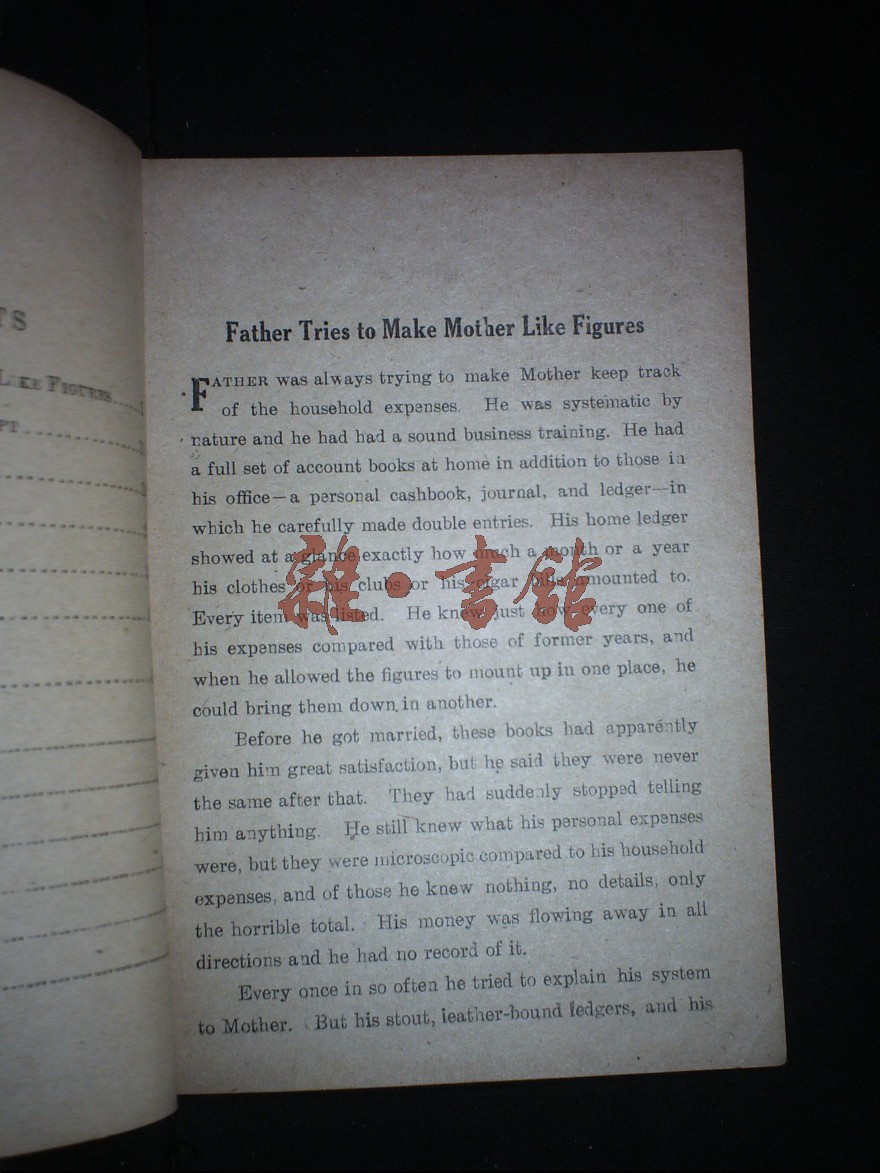 TS
LIKE FIGURES
PT
Father Tries to Make Mother Like Figures
FATHER was always trying to make Mother keep track
of the household expenses. He was systematic by
nature and he had had a sound business training. He had
a full set of account books at home in addition to those in
his office—a personal cashbook, journal, and ledger—in
which he carefully made double entries. His home ledger
showed at a glance exactly how much a month or a year
his clothes or his clubs or his cigar bills amounted to.
Every item was listed. He knew just how every one of
his expenses compared with those of former years, and
when he allowed the figures to mount up in one place, he
could bring them down in another.
Before he got married, these books had apparently
given him great satisfaction, but he said they were never
the same after that. They had suddenly stopped telling
him anything. He still knew what his personal expenses
were, but they were microscopic compared to his household
expenses, and of those he knew nothing, no details, only
the horrible total. His money was flowing away in all
directions and he had no record of it.
Every once in so often he tried to explain his system
to Mother. But his stout, leather-bound ledgers, and his
雜·書館